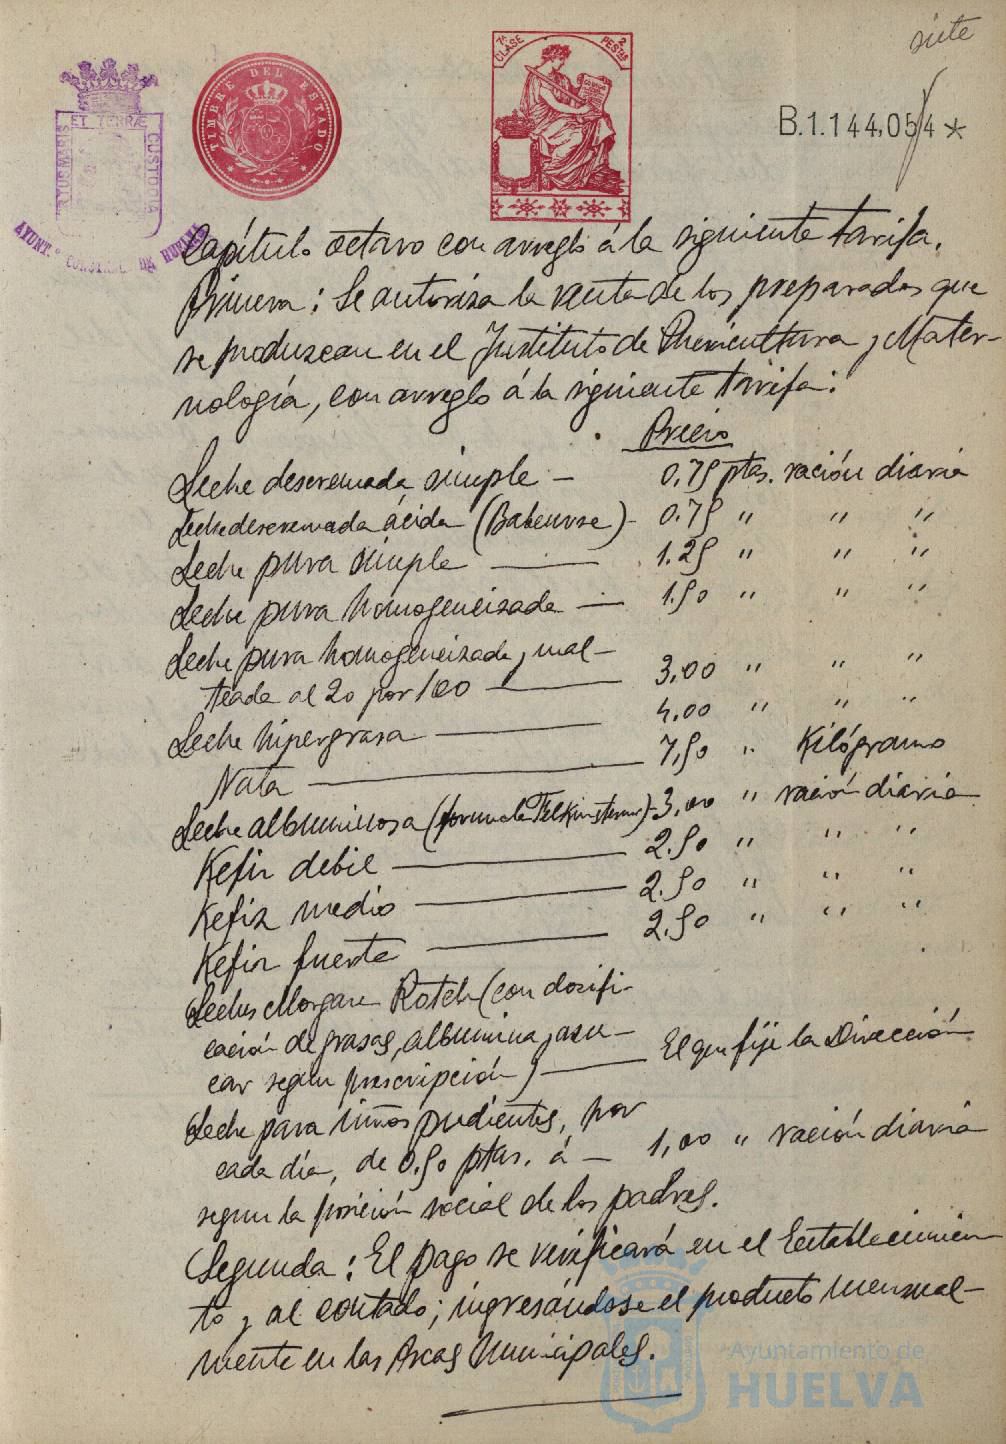 siete
7ª CLASE 2 PESTAS
TIMBRE DEL ESTADO
ET TERRÆ
CUSTODIA
B.1.144,054*
AYUNT.º CONSTNAL DE HUELVA
Capítulo octavo con arreglo á la siguiente tarifa.
Primera: Se autoriza la venta de los preparados que
se produzcan en el Instituto de Puericultura y Mater-
nología, con arreglo á la siguiente tarifa:
Precio
Leche desnemada simple — 0,75 ptas. ración diaria
Leche desnemada ácida (Babeurre) - 0.75 " " "
Leche pura simple — 1.25 " " "
Leche pura homogeneizada — 1.50 " " "
Leche pura homogeneizada y mal-
teada al 20 por 100 — 3,00 " " "
Leche hipergrasa — 4,00 " " "
Nata — 7,50 " Kilógramo
Leche albuminosa (formula ) - 3,00 " ración diaria
Kefir debil — 2.50 " " "
Kefir medio — 2.50 " " "
Kefir fuerte — 2.50 " " "
Leches Morgan Rotch (con dosifi-
cación de grasas, albumina y azu-
car segun prescripción) — El que fije la Dirección
Leche para niños pudientes, por
cada día, de 0,50 ptas. á — 1,00 " ración diaria
segun la posición social de los padres.
Segunda: El pago se verificará en el Establecimien
to y al contado; ingresándose el producto mensual-
mente en las Arcas Municipales.
Ayuntamiento de
HUELVA